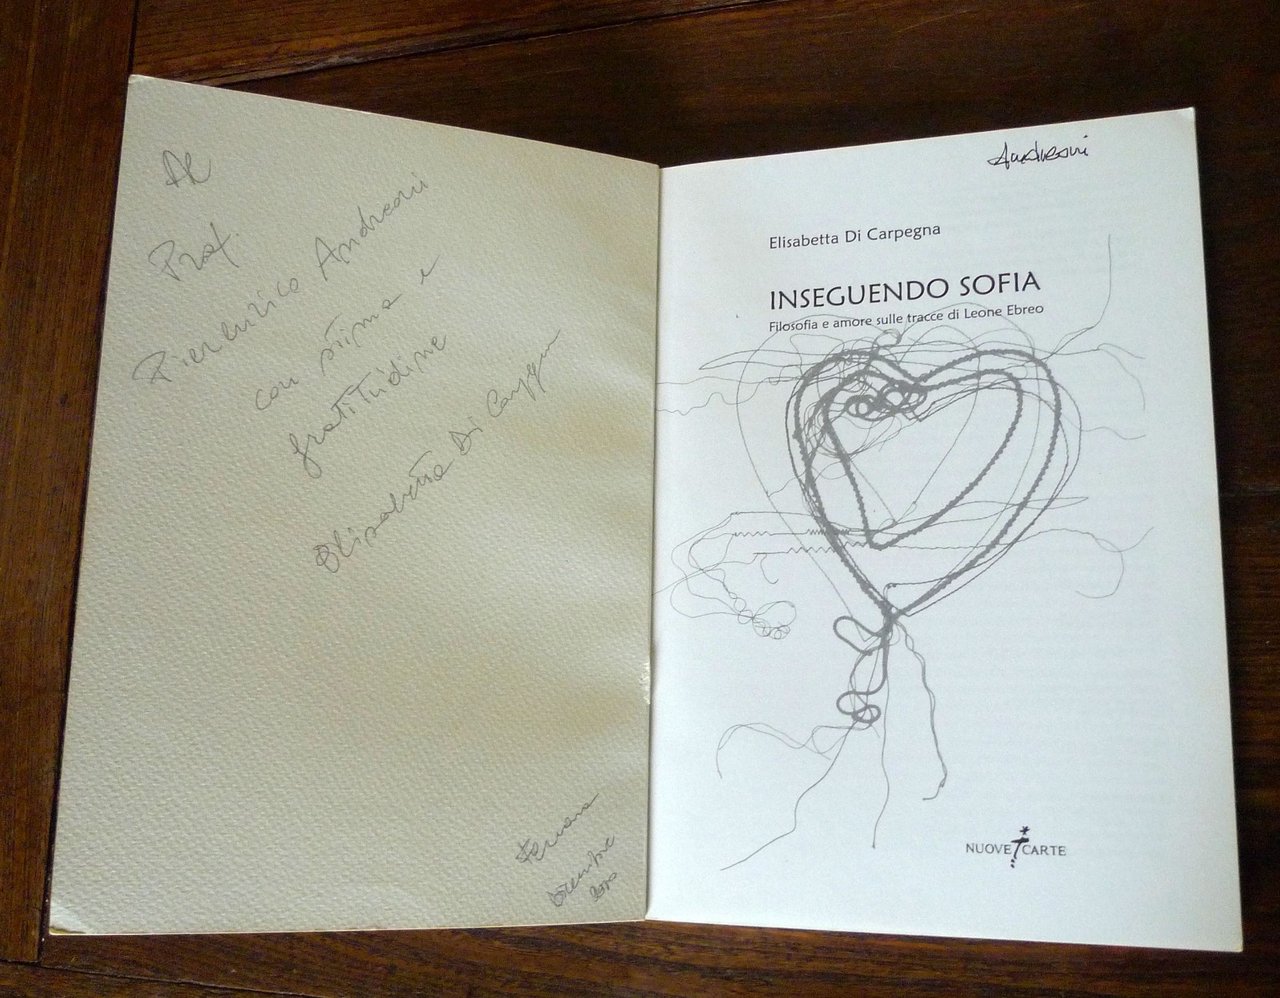 Al
Prof.
Pierenrico Andreoni
con stima e
gratitudine
Elisabetta Di Carpegna
Ferrara
Dicembre
Andreoni
Elisabetta Di Carpegna
INSEGUENDO SOFIA
Filosofia e amore sulle tracce di Leone Ebreo
NUOVE CARTE